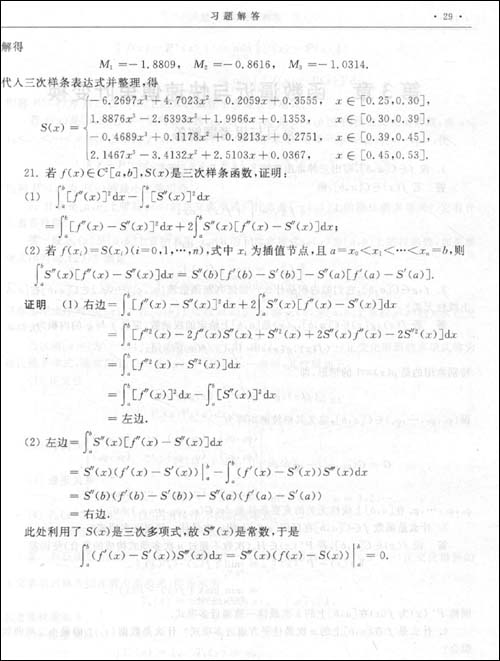 习题解答 · 29 ·
解得
M₁ = −1.8809, M₂ = −0.8616, M₃ = −1.0314.
代入三次样条表达式并整理,得
S(x) = { −6.2697x³ + 4.7023x² − 0.2059x + 0.3555, x ∈ [0.25,0.30],
1.8876x³ − 2.6393x² + 1.9966x + 0.1353, x ∈ [0.30,0.39],
−0.4689x³ + 0.1178x² + 0.9213x + 0.2751, x ∈ [0.39,0.45],
2.1467x³ − 3.4132x² + 2.5103x + 0.0367, x ∈ [0.45,0.53].
21. 若 f(x) ∈ C²[a,b], S(x)是三次样条函数,证明:
(1) ∫ₐᵇ[f″(x)]²dx − ∫ₐᵇ[S″(x)]²dx
= ∫ₐᵇ[f″(x) − S″(x)]²dx + 2∫ₐᵇS″(x)[f″(x) − S″(x)]dx;
(2) 若 f(xᵢ) = S(xᵢ)(i=0,1,⋯,n),式中 xᵢ 为插值节点,且 a = x₀ < x₁ < ⋯ < xₙ = b,则
∫ₐᵇS″(x)[f″(x) − S″(x)]dx = S″(b)[f′(b) − S′(b)] − S″(a)[f′(a) − S′(a)].
证明 (1) 右边 = ∫ₐᵇ[f″(x) − S″(x)]²dx + 2∫ₐᵇS″(x)[f″(x) − S″(x)]dx
= ∫ₐᵇ[f″²(x) − 2f″(x)S″(x) + S″²(x) + 2S″(x)f″(x) − 2S″²(x)]dx
= ∫ₐᵇ[f″²(x) − S″²(x)]dx
= ∫ₐᵇ[f″(x)]²dx − ∫ₐᵇ[S″(x)]²dx
= 左边.
(2) 左边 = ∫ₐᵇS″(x)[f″(x) − S″(x)]dx
= S″(x)(f′(x) − S′(x))|ₐᵇ − ∫ₐᵇ(f′(x) − S′(x))S‴(x)dx
= S″(b)(f′(b) − S′(b)) − S″(a)(f′(a) − S′(a))
= 右边.
此处利用了 S(x)是三次多项式,故 S‴(x)是常数,于是
∫ₐᵇ(f′(x) − S′(x))S‴(x)dx = S‴(x)(f(x) − S(x))|ₐᵇ = 0.